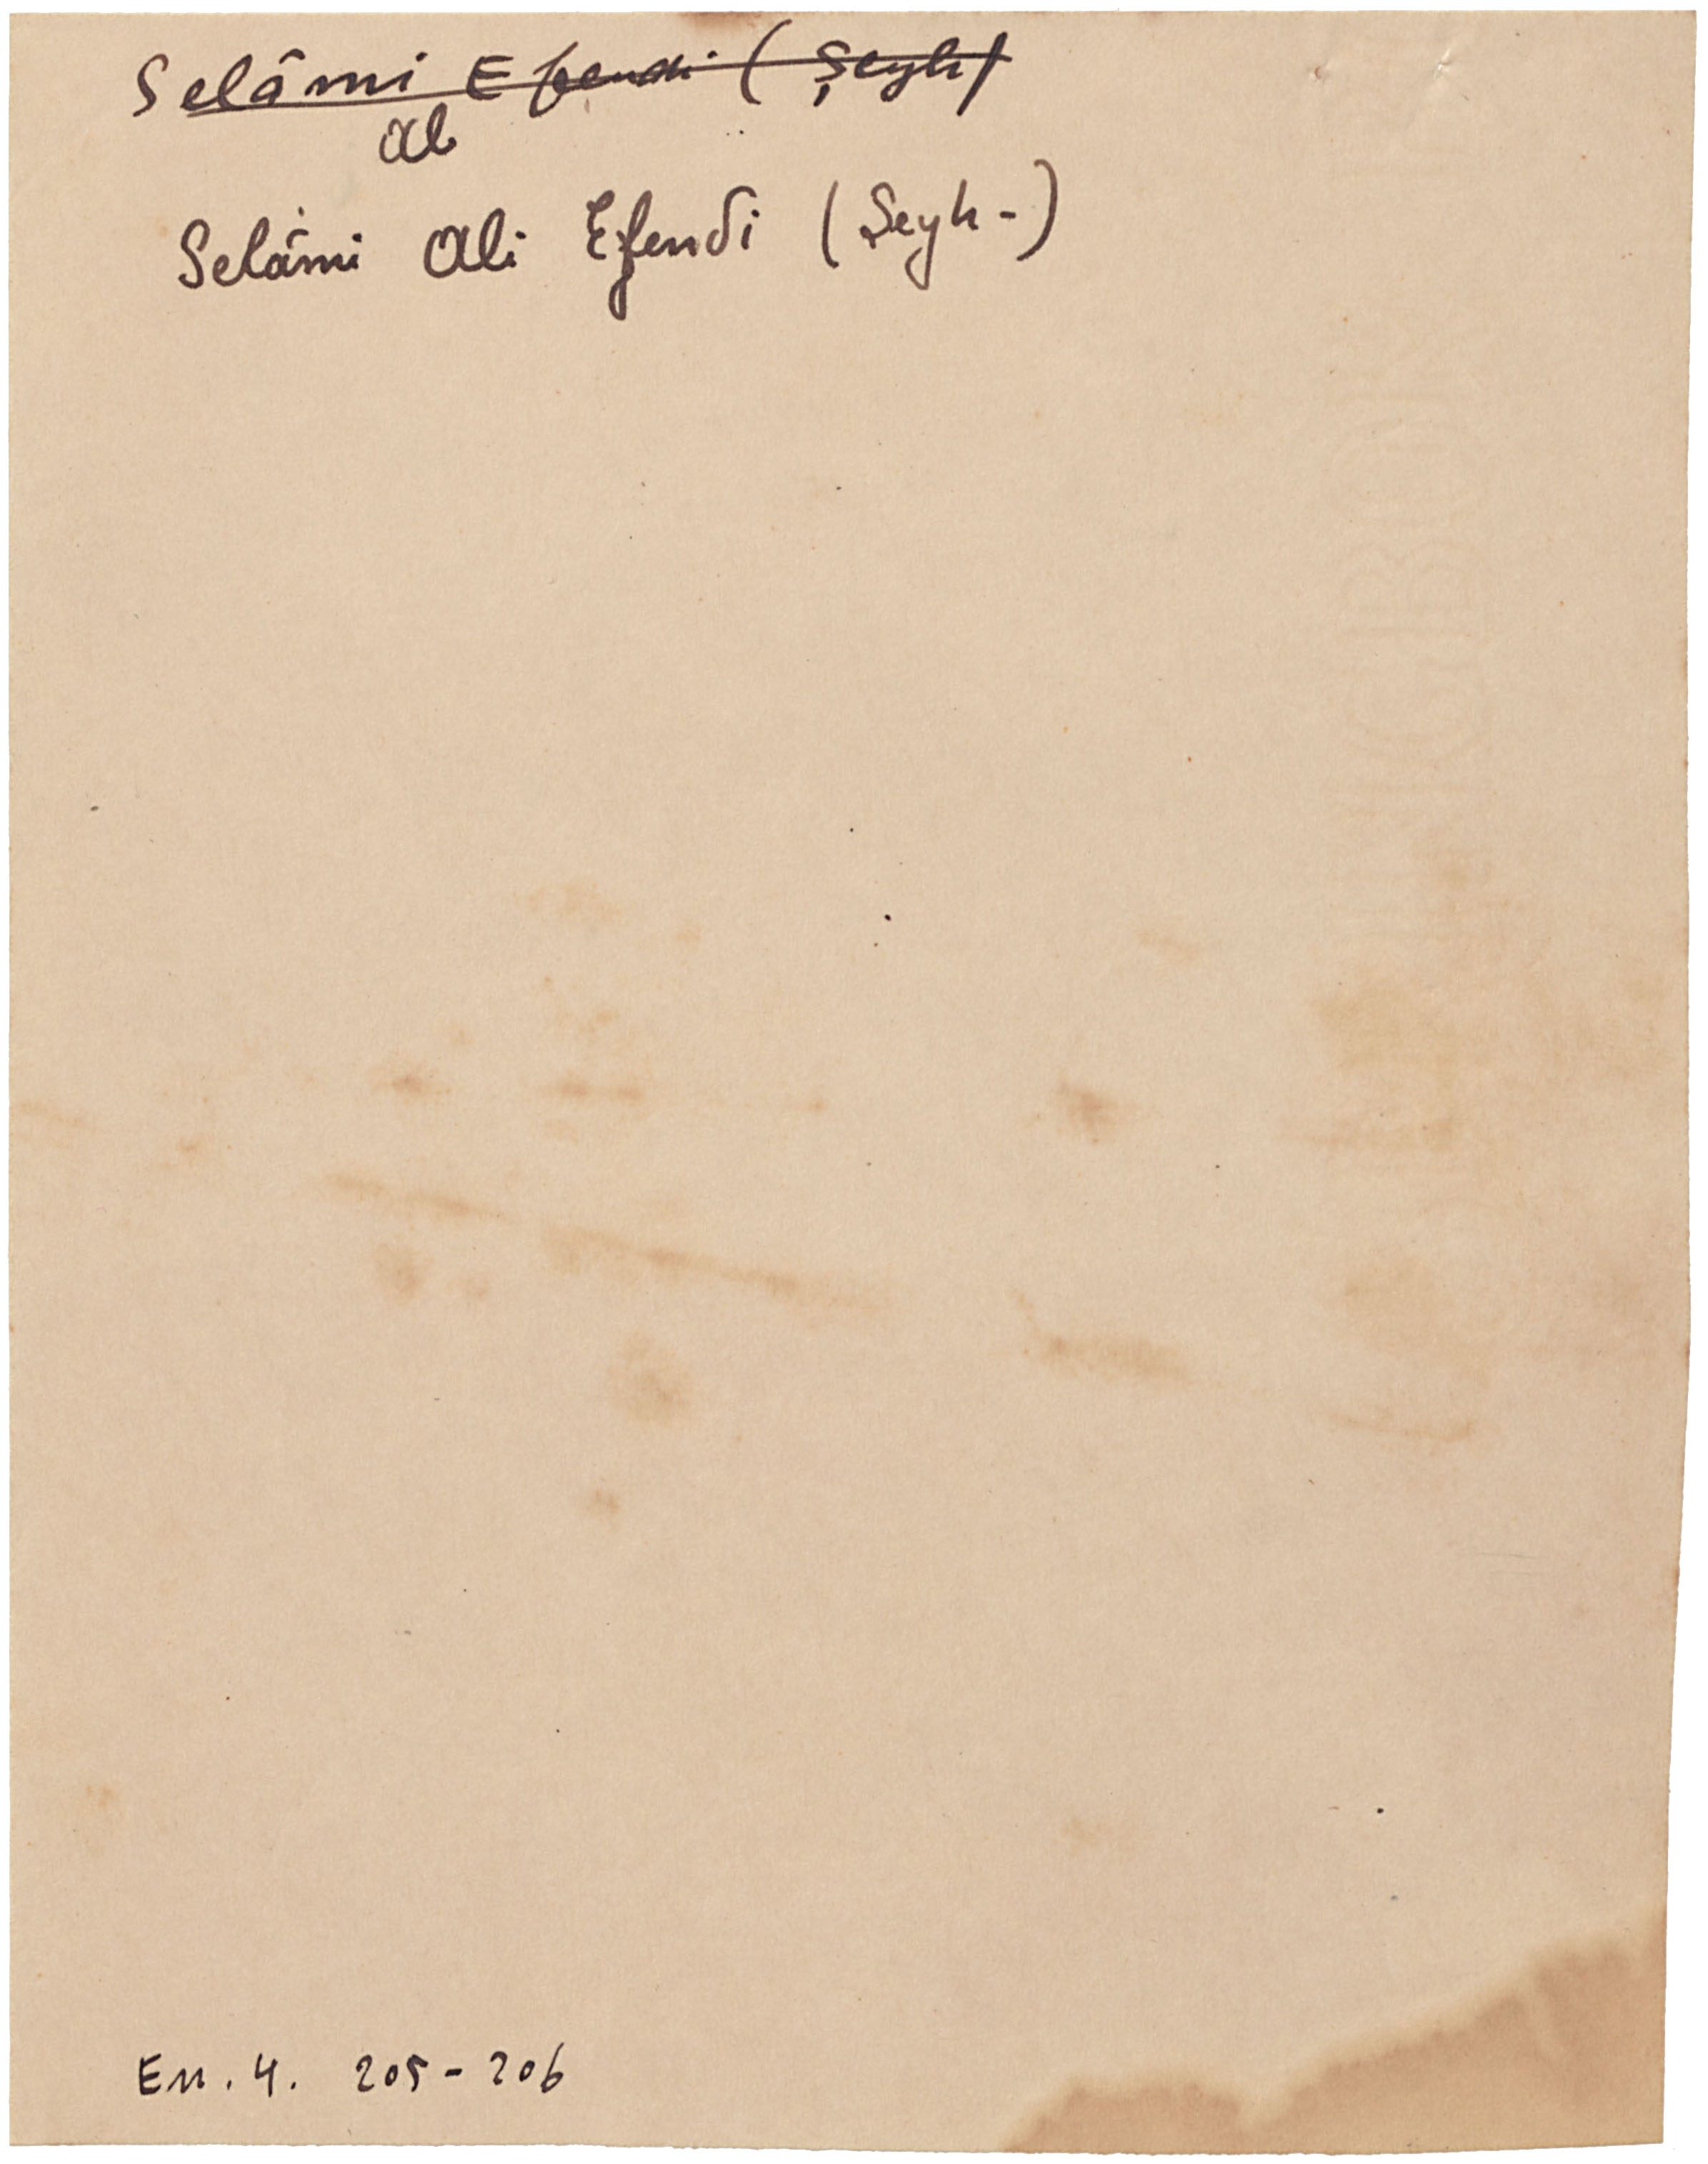 Selâmi Efendi (Şeyh)
Al
Selâmi Ali Efendi (Şeyh-)
En. 4. 205-206